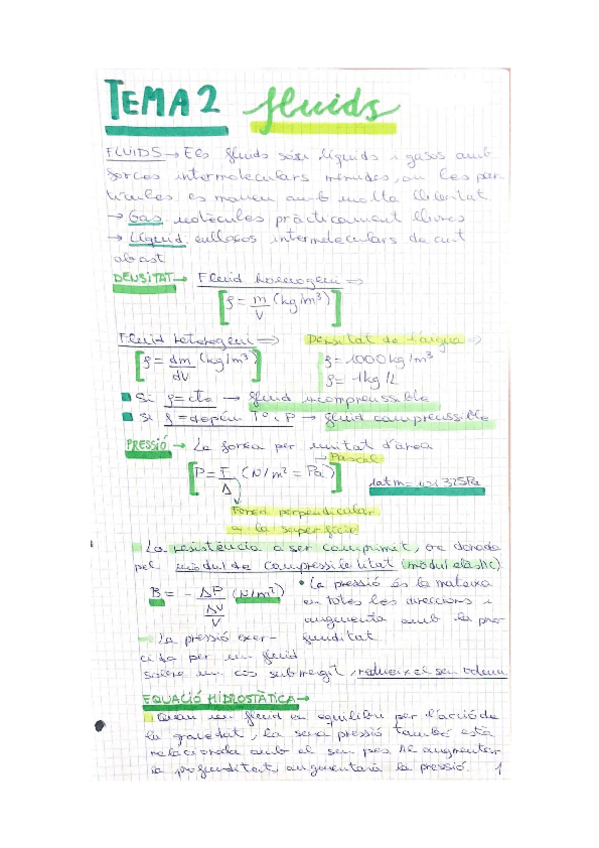 TEMA 2 fluids
FLUIDS → Els fluids són líquids i gasos amb
forces intermoleculars menudes, on les par
tícules es mouen amb molta llibertat
→ Gas molècules pràcticament lliures
→ Líquid enllaços intermoleculars de curt
abast
DENSITAT → Fluid homogeni ⇒
[ρ = m/V (kg/m³)]
Fluid heterogeni ⇒ Densitat de l'aigua ⇒
[ρ = dm/dV (kg/m³)] ρ = 1000 kg/m³
ρ = 1kg/L
Si ρ = cte → fluid incompressible
Si ρ = depén Tº i P → fluid compressible
PRESSIÓ → La força per unitat d'àrea
→ Pascal
[P = F/A (N/m² = Pa)] 1atm = 101325Pa
Força perpendicular
a la superfície
La resistència a ser comprimit, ve donada
pel mòdul de compressibilitat (mòdul elàstic)
B = - ΔP/(ΔV/V) (N/m²) • La pressió és la mateixa
en totes les direccions i
augmenta amb la pro
funditat
La pressió exer-
cida per un fluid
sobre un cos submergit, redueix el seu volum
EQUACIÓ HIDROSTÀTICA →
Quan un fluid en equilibri per l'acció de
la gravetat, la seva pressió també està
relacionada amb el seu pes. Al augmentar
la profunditat, augmentarà la pressió. 1